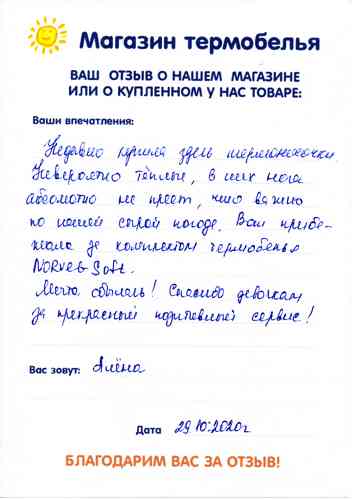 Магазин термобелья
ВАШ ОТЗЫВ О НАШЕМ МАГАЗИНЕ
ИЛИ О КУПЛЕННОМ У НАС ТОВАРЕ:
Ваши впечатления:
Недавно купила здесь термоносочки.
Невероятно тёплые, в них нога
абсолютно не преет, что важно
по нашей сырой погоде. Вот прибе-
жала за комплектом термобелья
NORVEG Soft.
Мечта сбылась! Спасибо девочкам
за прекрасный позитивный сервис!
Вас зовут: Алёна
Дата 29.10.2020г
БЛАГОДАРИМ ВАС ЗА ОТЗЫВ!